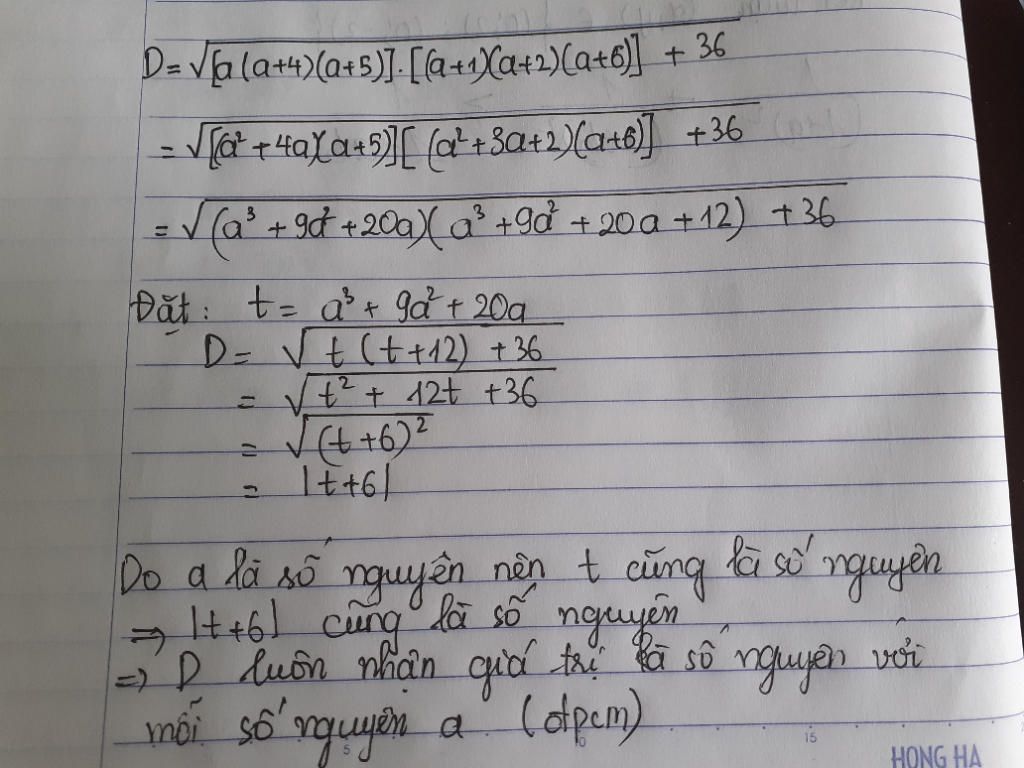 D = √[a(a+4)(a+5)].[(a+1)(a+2)(a+6)] + 36
= √[(a² + 4a)(a+5)][(a²+3a+2)(a+6)] + 36
= √(a³ + 9a² + 20a)(a³ + 9a² + 20a + 12) + 36
Đặt: t = a³ + 9a² + 20a
D = √t(t+12) + 36
= √t² + 12t + 36
= √(t+6)²
= |t+6|
Do a là số nguyên nên t cũng là số nguyên
⇒ |t+6| cũng là số nguyên
⇒ D luôn nhận giá trị là số nguyên với
mỗi số nguyên a (đpcm)
5 10 15
HONG HA